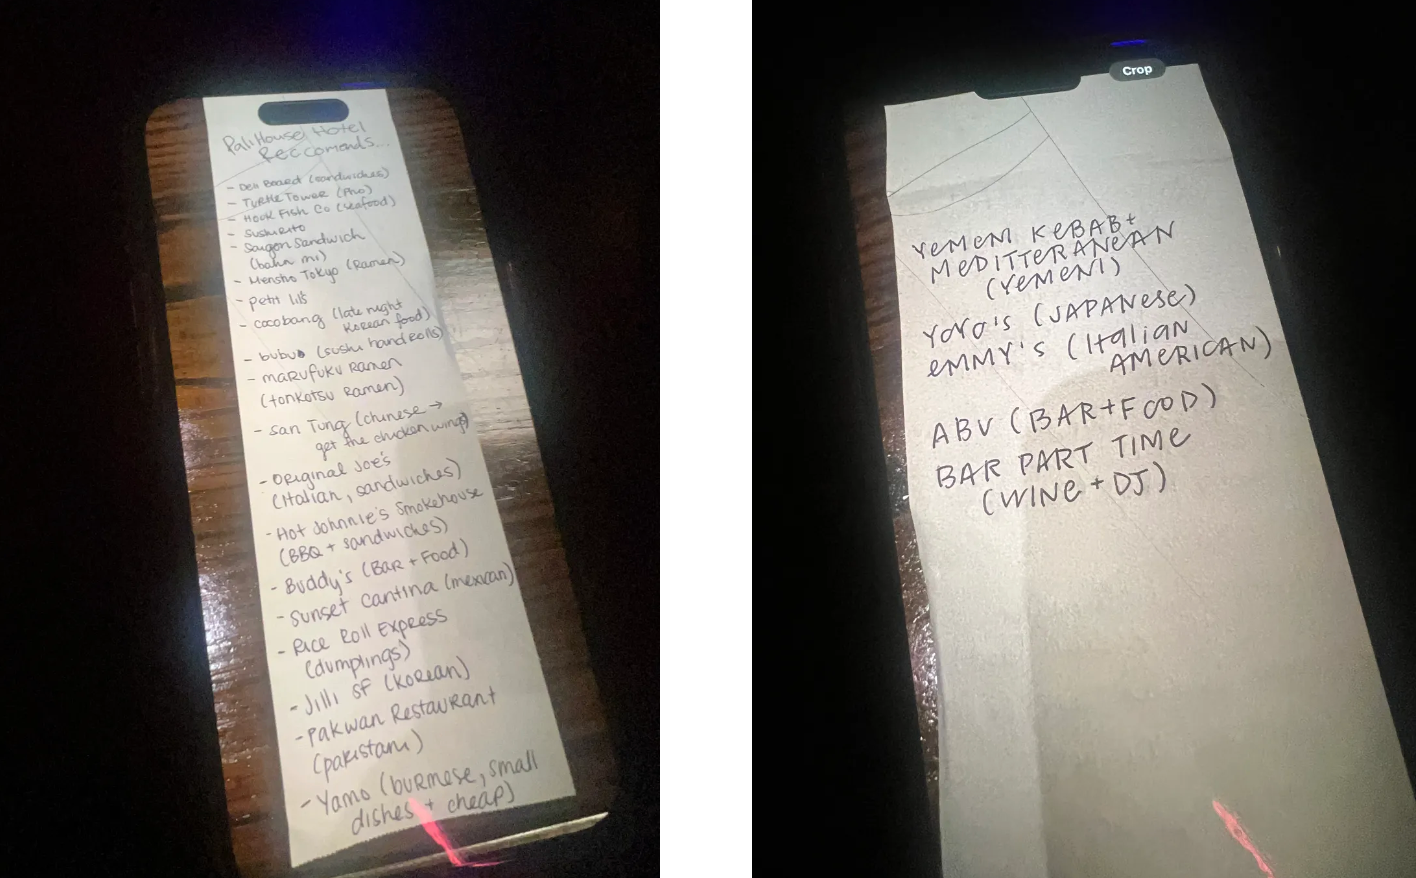 PaliHouse Hotel
Reccomends...
- Deli Board (sandwiches)
- Turtle Tower (Pho)
- Hook Fish Co (seafood)
- Sushirrito
- Saigon Sandwich
(bahn mi)
- Mensho Tokyo (Ramen)
- petit lil's
- cocobang (late night
Korean food)
- bubu (sushi hand rolls)
- marufuku Ramen
(tonkotsu Ramen)
- San Tung (chinese →
get the chicken wings)
- Original Joe's
(Italian, sandwiches)
- Hot Johnnie's Smokehouse
(BBQ + sandwiches)
- Buddy's (Bar + Food)
- Sunset Cantina (mexican)
- Rice Roll Express
(dumplings)
- Jilli SF (Korean)
- Pakwan Restaurant
(pakistani)
- Yamo (burmese, small
dishes + cheap)
Crop
YEMENI KEBAB +
MEDITTERANEAN
(YEMENI)
YOYO'S (JAPANESE)
EMMY'S (Italian
AMERICAN)
ABV (BAR + FOOD)
BAR PART TIME
(WINE + DJ)